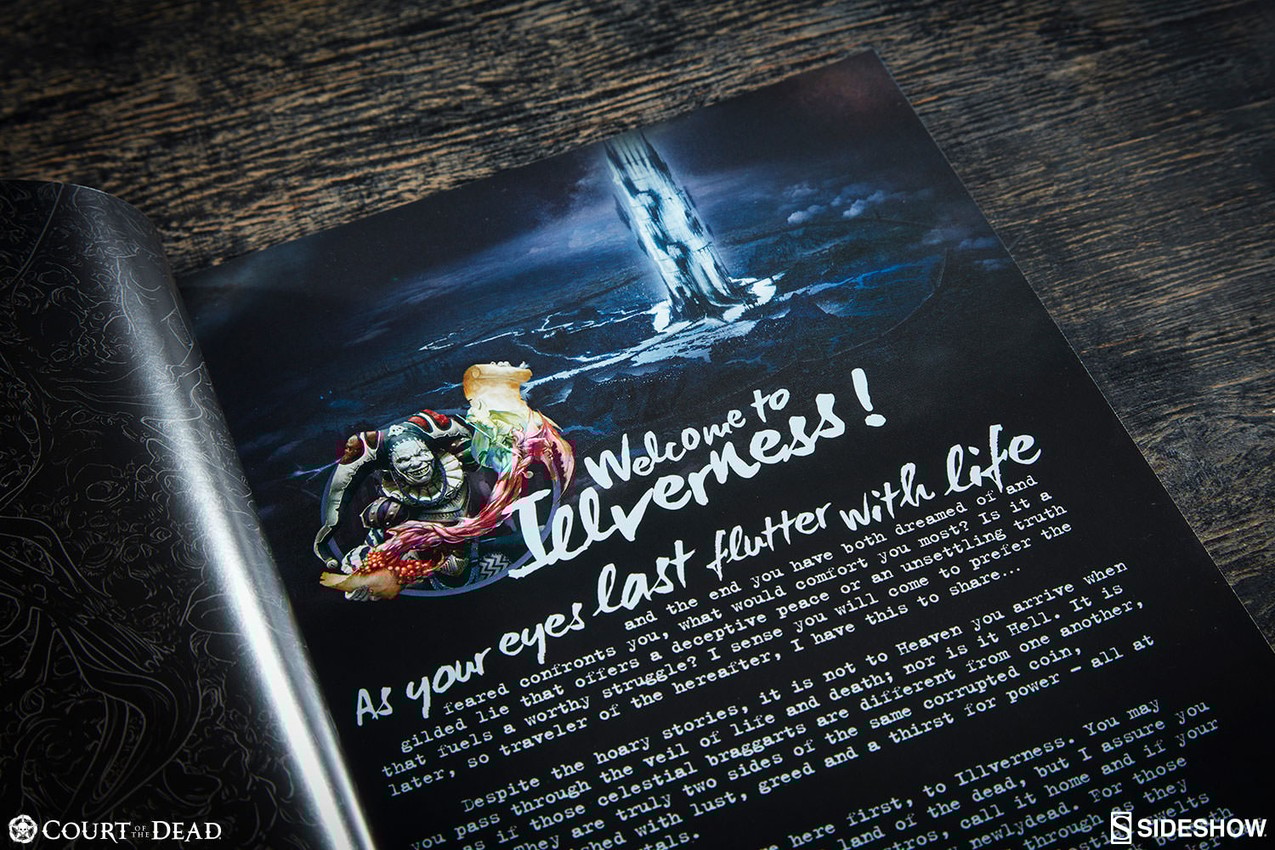 Welcome to
Illverness!
As your eyes last flutter with life
and the end you have both dreamed of and
feared confronts you, what would comfort you most? Is it a
gilded lie that offers a deceptive peace or an unsettling truth
that fuels a worthy struggle? I sense you will come to prefer the
later, so traveler of the hereafter, I have this to share...
Despite the hoary stories, it is not to Heaven you arrive when
you pass through the veil of life and death; nor is it Hell. It is
as if those celestial braggarts are different from one another,
They are truly two sides of the same corrupted coin,
with lust, greed and a thirst for power — all at
here first, to Illverness. You may
land of the dead, but I assure you
call it home and if your
newlydead. For those
through as they
COURT OF THE DEAD
SIDESHOW